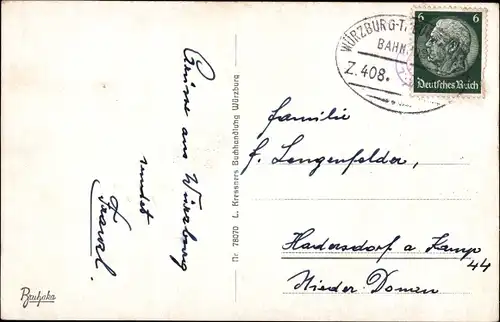 Grüsse aus Würzburg
sendet
Franzl.
Bauhaka
Nr. 78070 L. Kressners Buchhandlung Würzburg
WÜRZBURG-T
BAHN
Z. 408.
6 6
Deutsches Reich
Familie
F. Lengenfelder,
Hadersdorf a Kamp
44
Nieder Donau